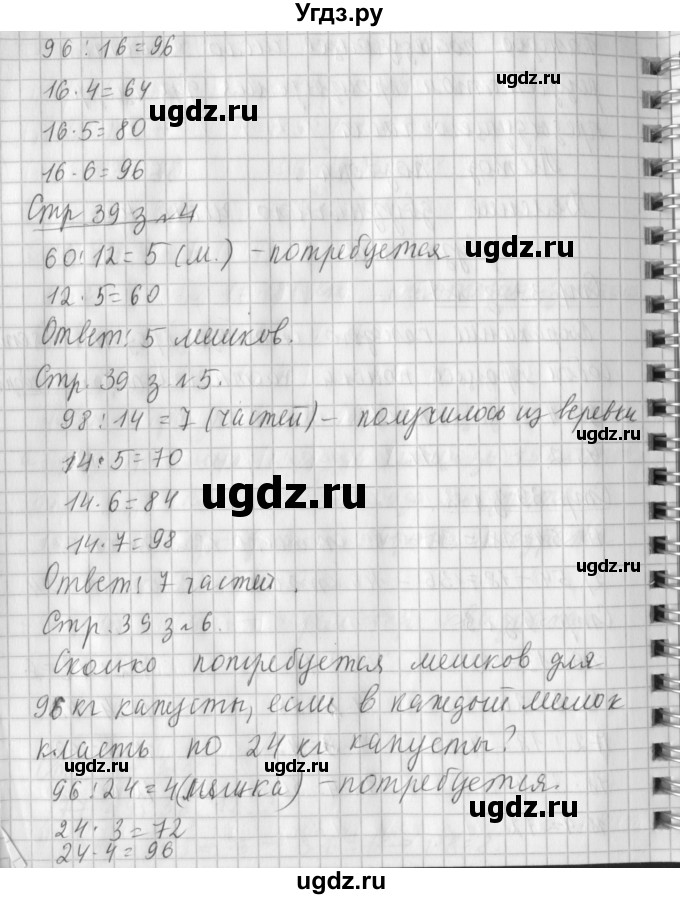 Угдз.ру
96 : 16 = 96
ugdz.ru
16 · 4 = 64
ugdz.ru
16 · 5 = 80
16 · 6 = 96
Стр 39 з №4
60 : 12 = 5 (м.) – потребуется
ugdz.ru
12 · 5 = 60
Ответ: 5 мешков.
Стр. 39 з №5.
98 : 14 = 7 (частей) – получилось из веревки
ugdz.ru
14 · 5 = 70
14 · 6 = 84
ugdz.ru
14 · 7 = 98
Ответ: 7 частей.
ugdz.ru
Стр. 39 з №6.
Сколько потребуется мешков для
96 кг капусты, если в каждый мешок
класть по 24 кг капусты?
ugdz.ru
ugdz.ru
96 : 24 = 4 (мешка) – потребуется.
ugdz.ru
24 · 3 = 72
24 · 4 = 96
ugdz.ru